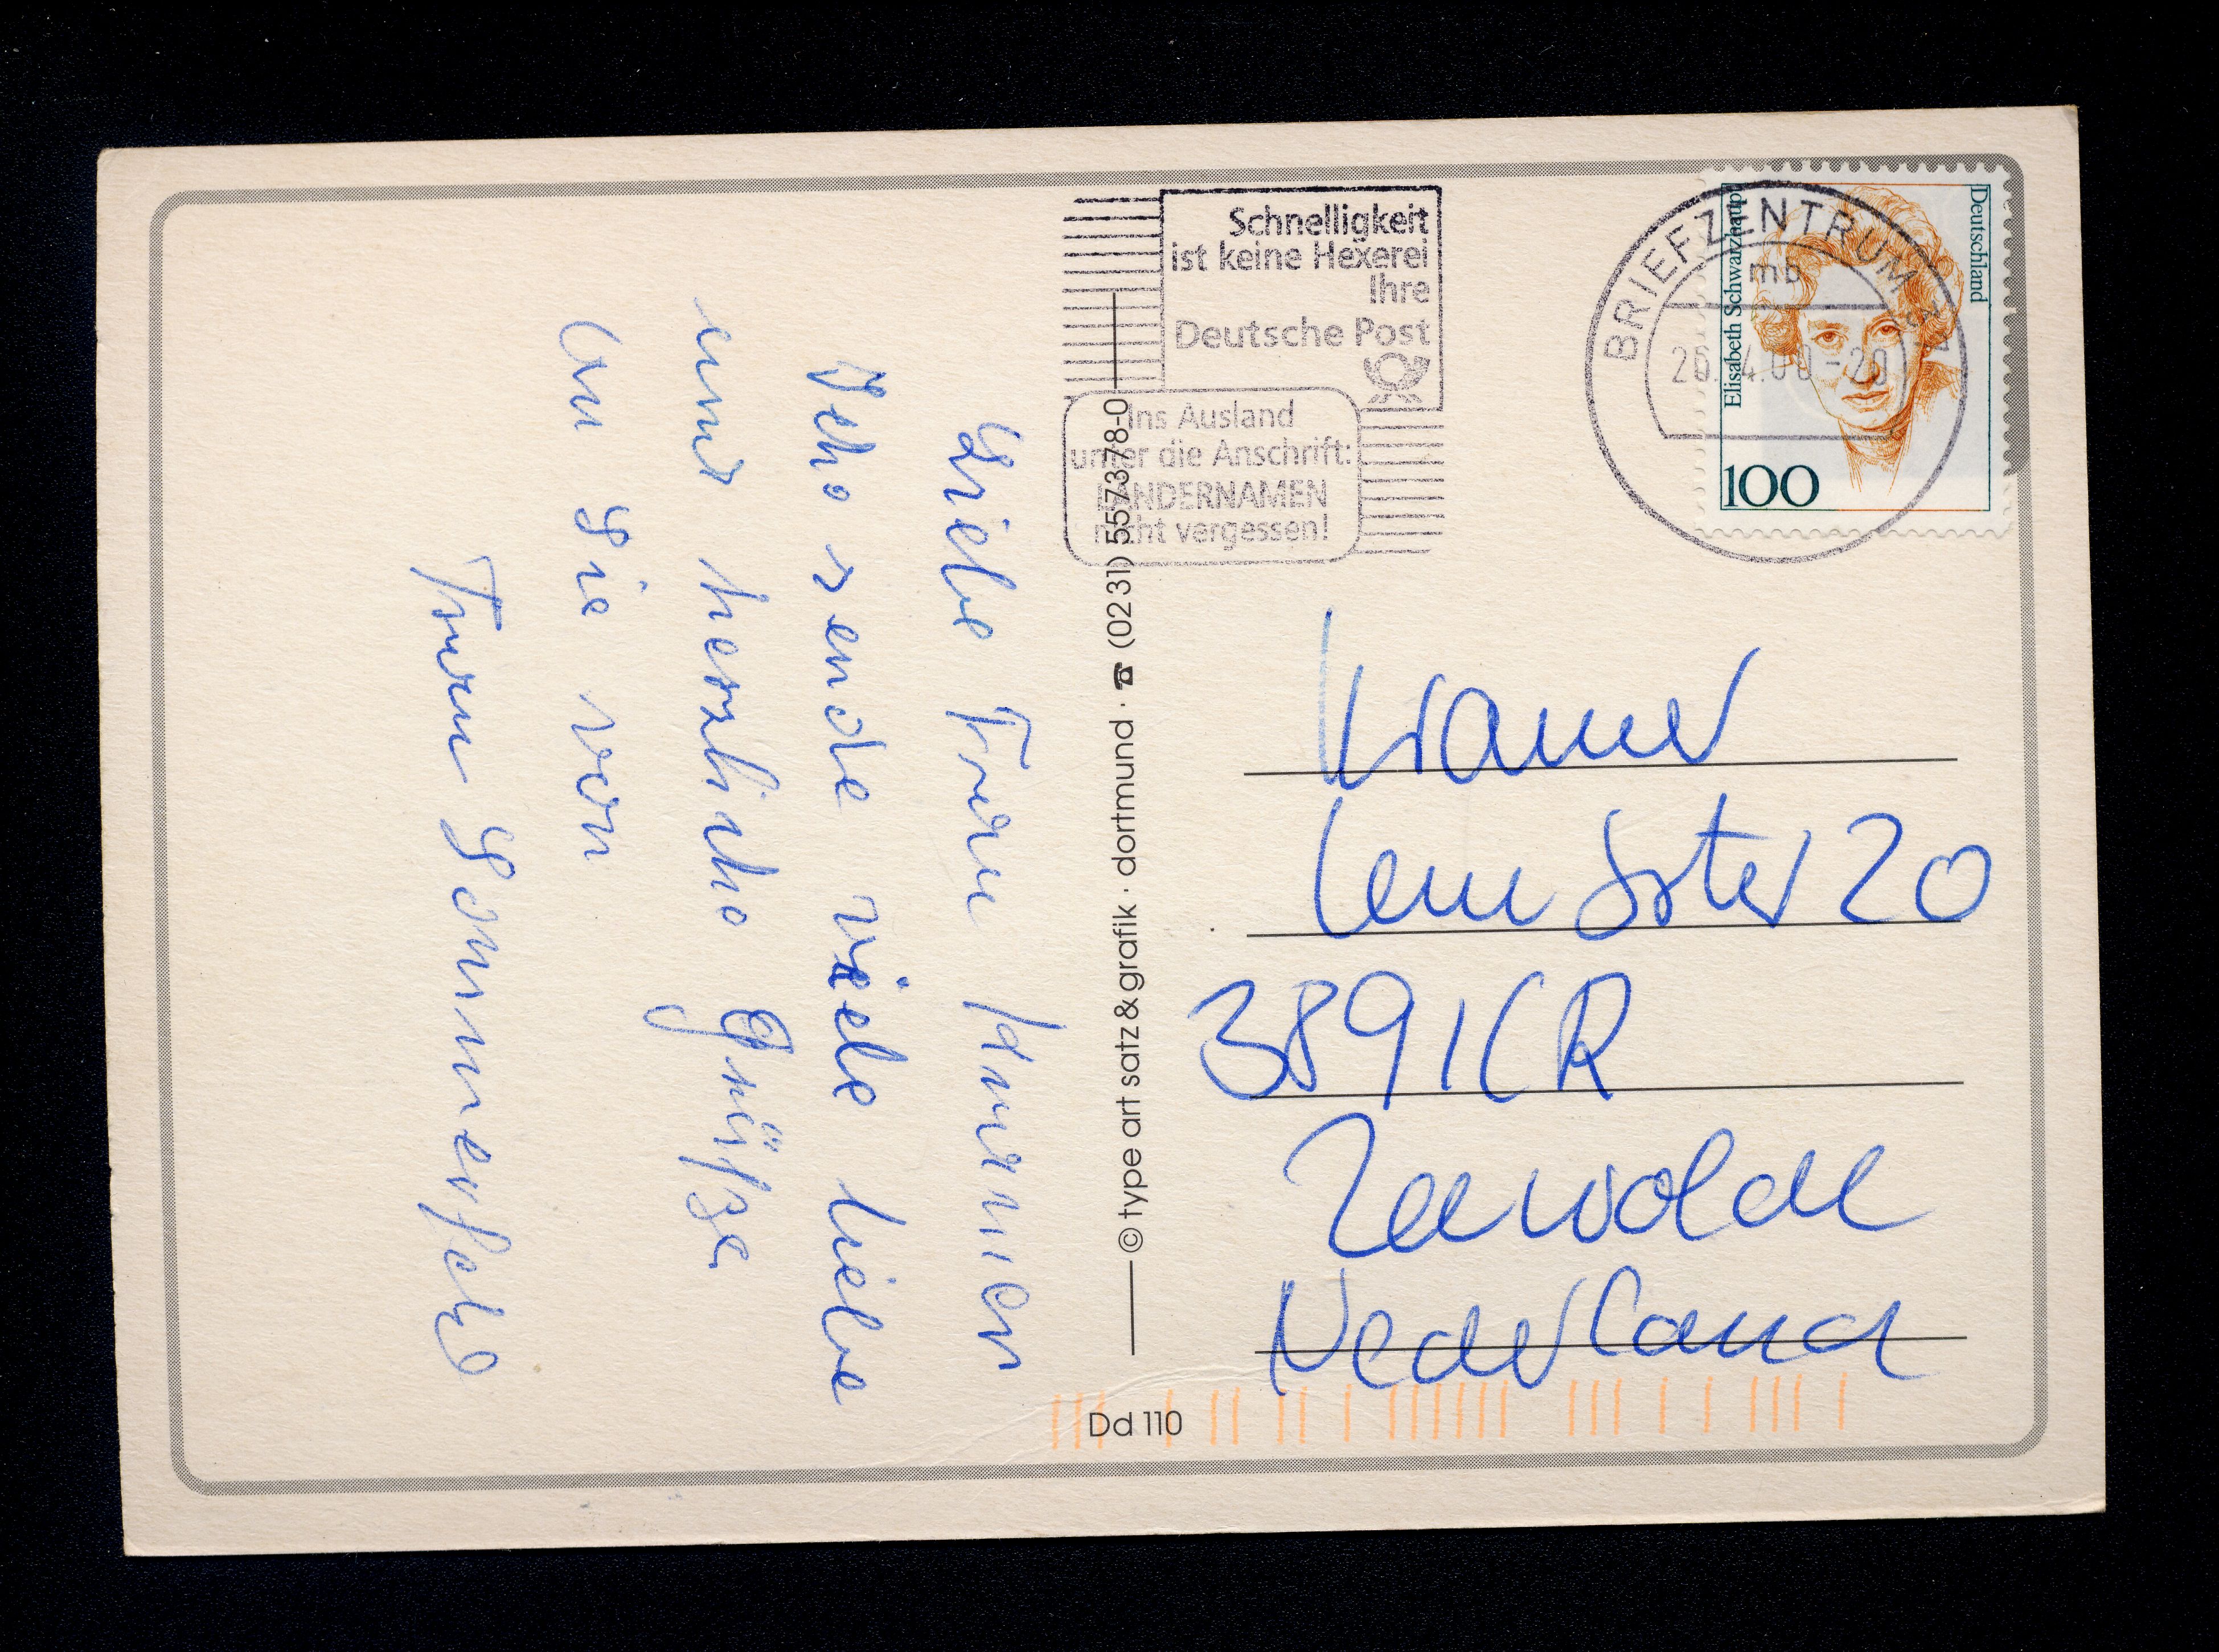 Liebe Frau Kramer
Ich sende viele liebe
und herzliche Grüße
an Sie von
Frau Sommerfeld
© type art satz & grafik · dortmund · ☎ (0231) 557378-0
Schnelligkeit
ist keine Hexerei
Ihre
Deutsche Post
Ins Ausland
unter die Anschrift:
LÄNDERNAMEN
nicht vergessen!
BRIEFZENTRUM
mb
Deutschland
Elisabeth Schwarzhaupt
100
Kramer
20
3891CR
Zeewolde
Nederland
Dd 110